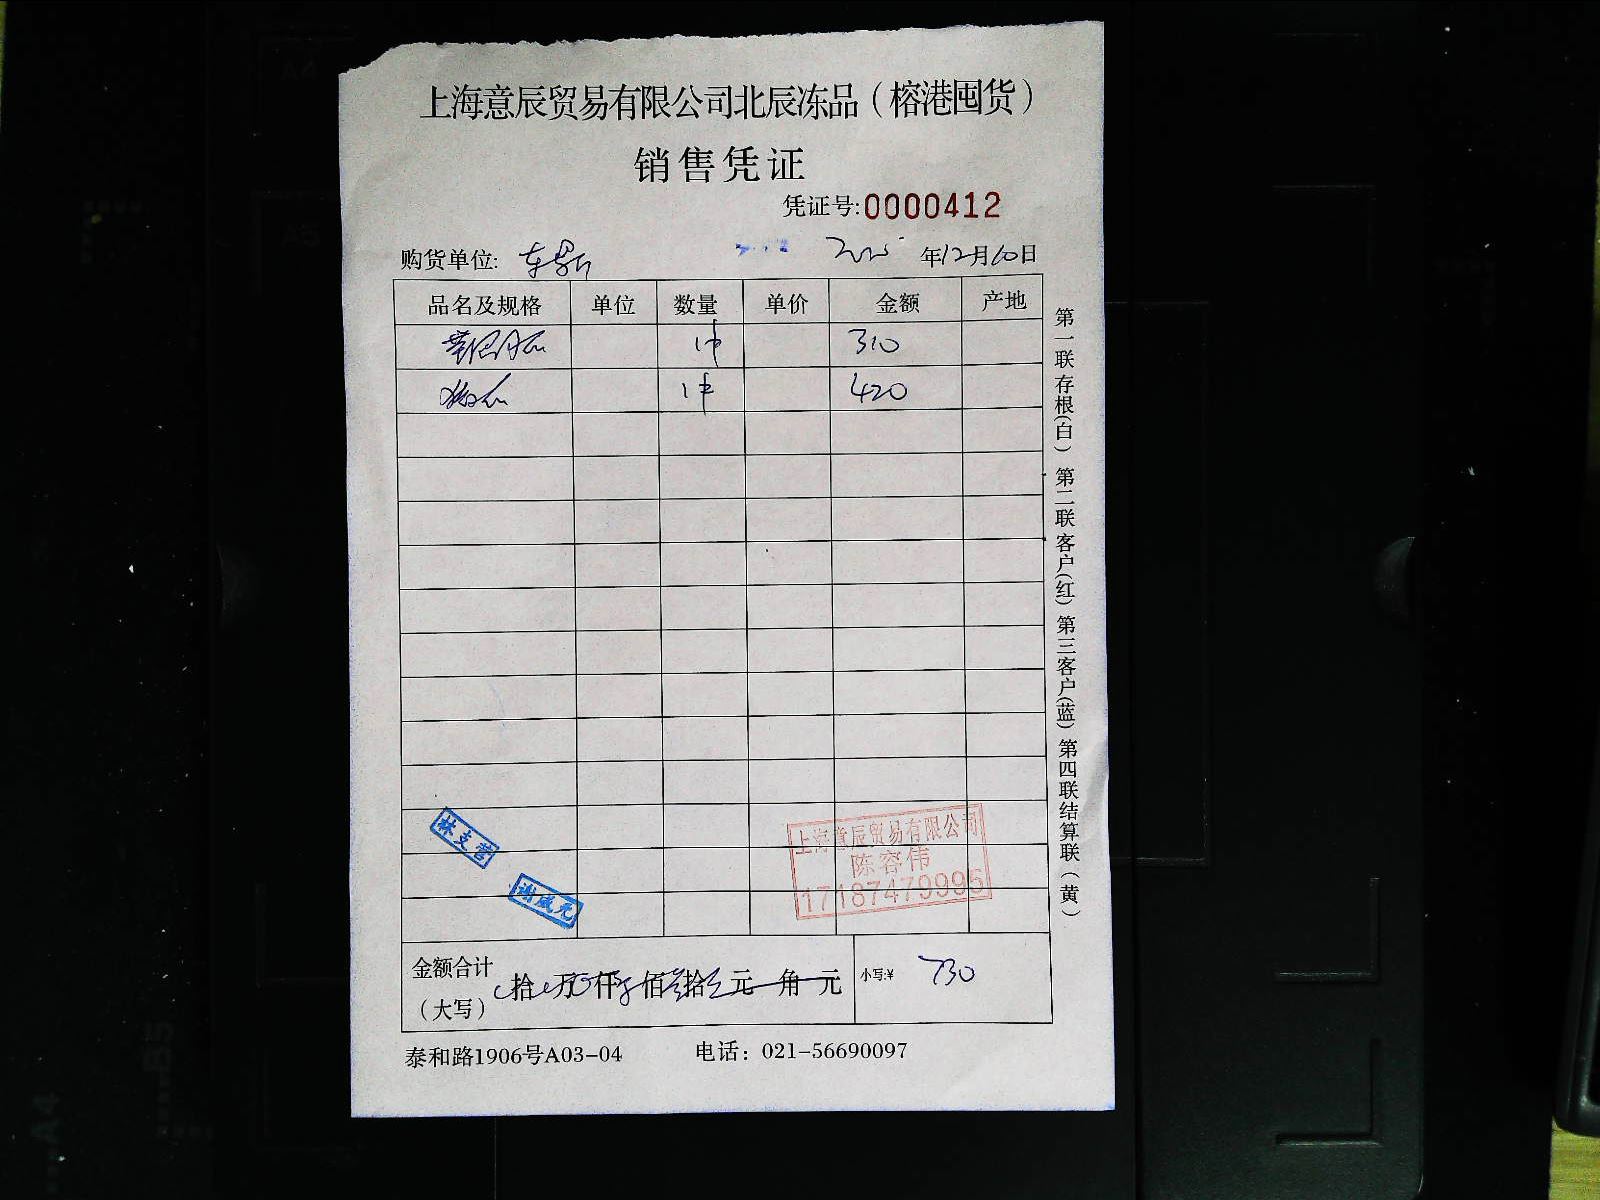 上海意辰贸易有限公司北辰冻品（榕港囤货）
销售凭证
凭证号:0000412
购货单位: 2025年12月10日
品名及规格 单位 数量 单价 金额 产地
1件 310
1件 420
第一联存根(白) 第二联客户(红) 第三客户(蓝) 第四联结算联（黄）
林支营
谢成光
上海意辰贸易有限公司
陈容伟
17187479995
金额合计（大写） 拾 万 仟 佰 拾 元 角 元 小写:¥ 730
泰和路1906号A03-04 电话：021-56690097